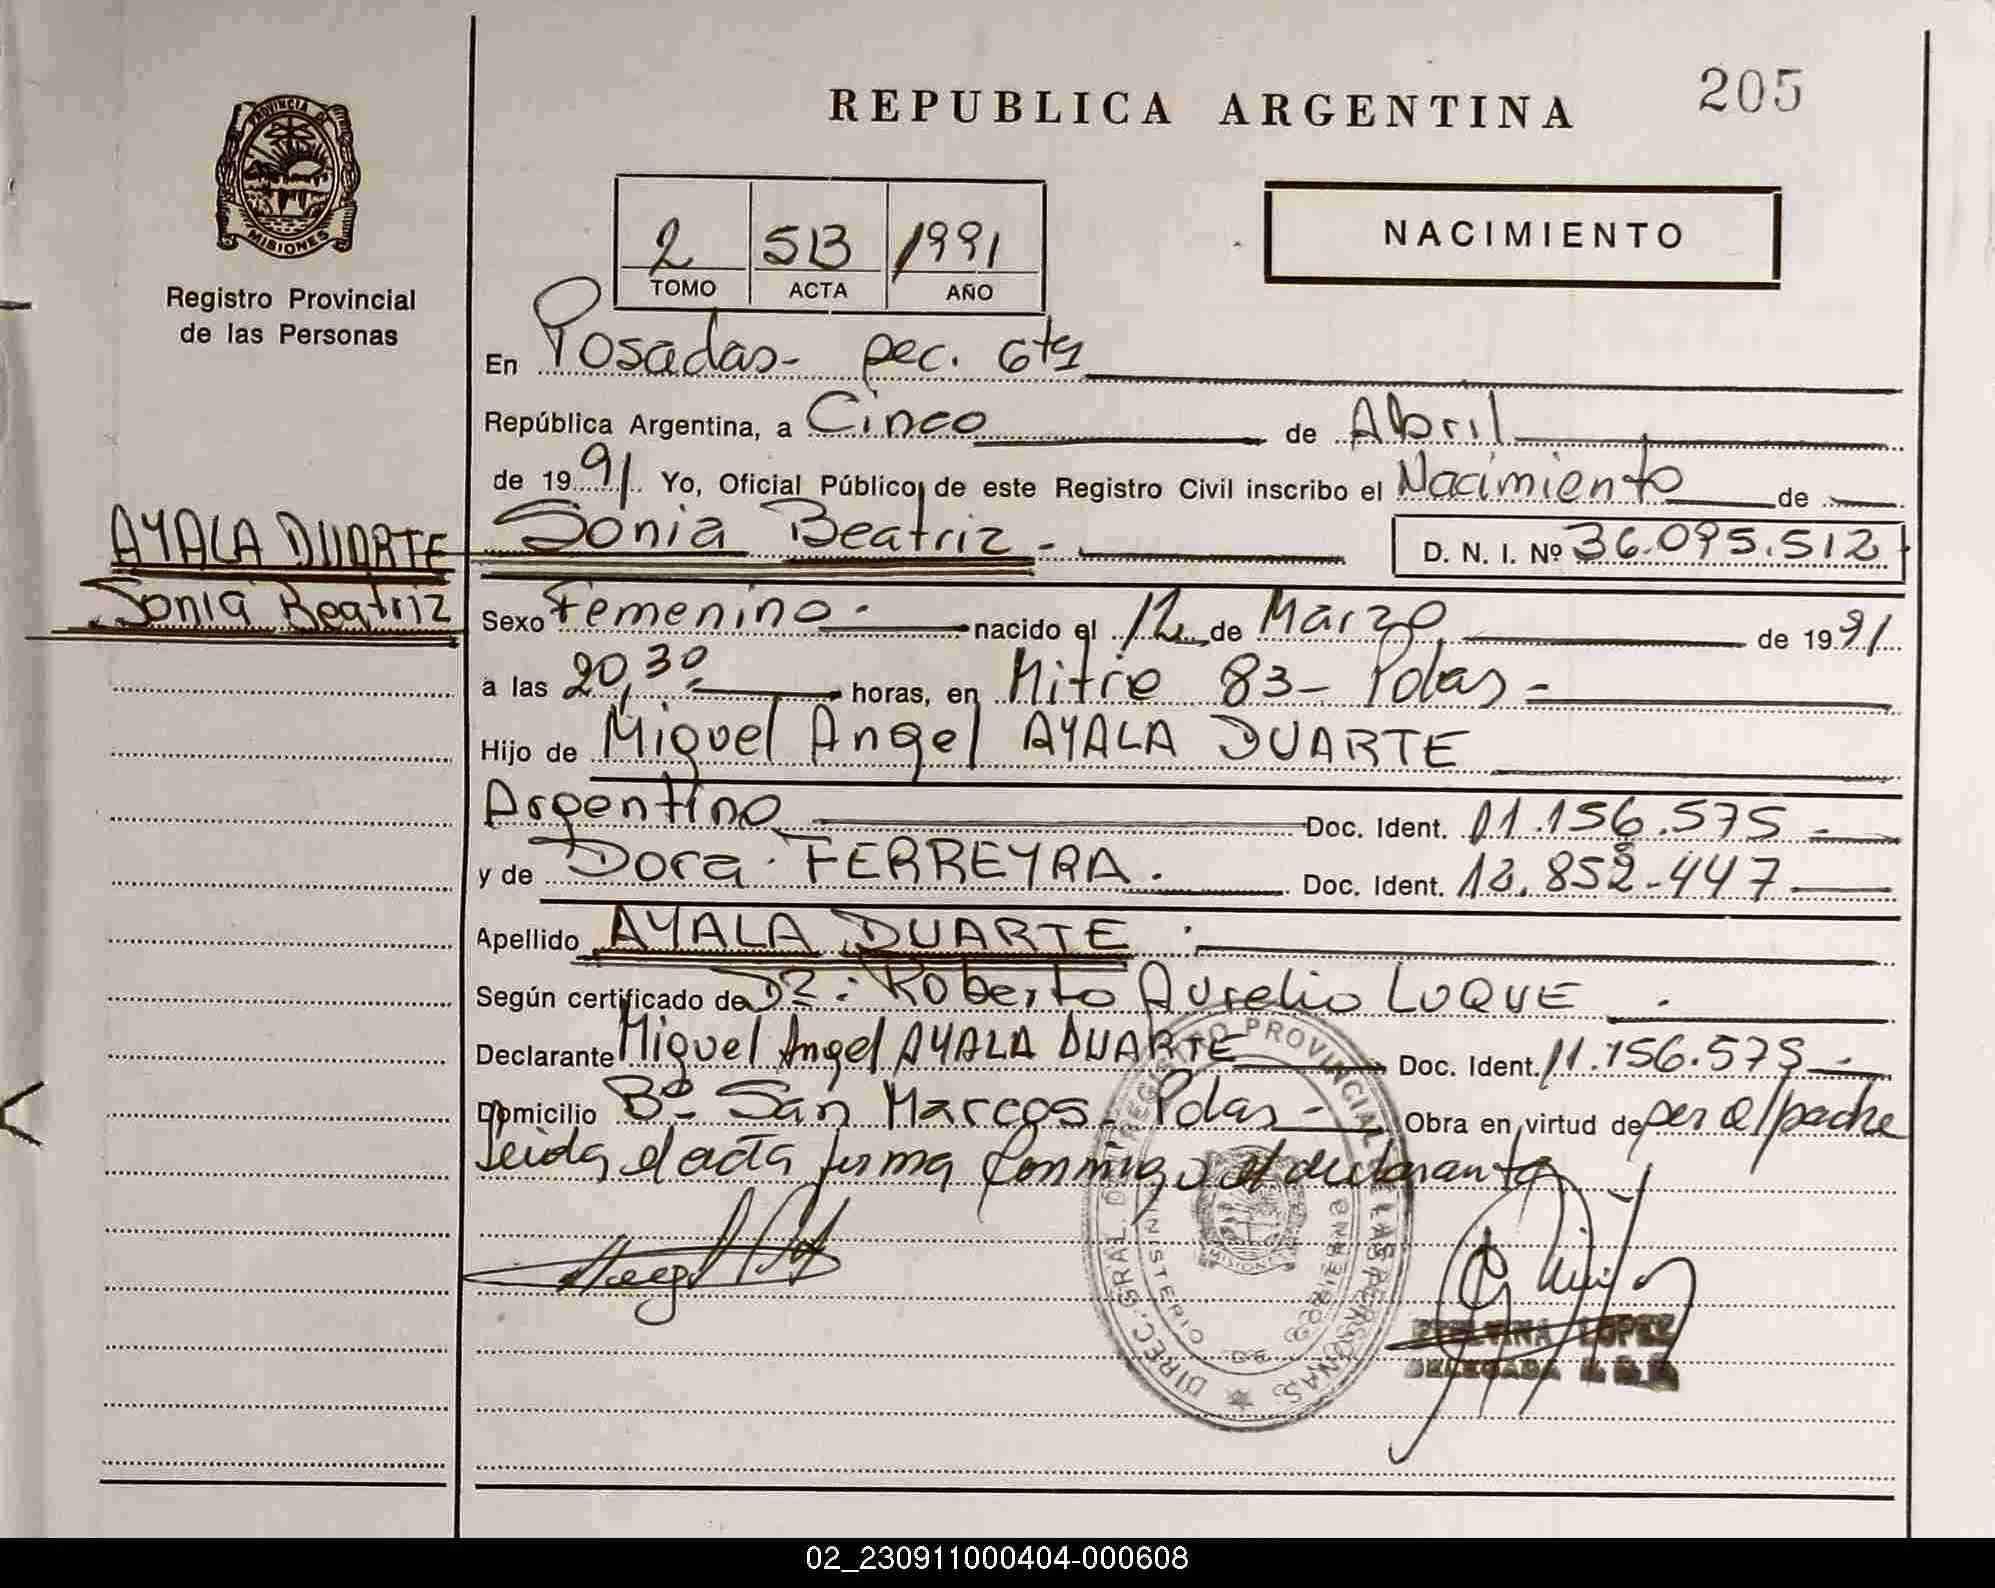 REPUBLICA ARGENTINA
205
PROVINCIA DE
MISIONES
Registro Provincial
de las Personas
2 513 1991
TOMO ACTA AÑO
NACIMIENTO
En Posadas- Sec. 6ta
República Argentina, a Cinco de Abril
de 1991 Yo, Oficial Público, de este Registro Civil inscribo el Nacimiento de
AYALA DUARTE
Sonia Beatriz
Sonia Beatriz - D. N. I. Nº 36.095.512
Sexo Femenino. nacido el 12 de Marzo de 1991
a las 20,30 horas, en Mitre 83- Pdas -
Hijo de Miguel Angel AYALA DUARTE
Argentino Doc. Ident. 11.156.575 -
y de Dora FERREYRA. Doc. Ident. 12.852.447
Apellido AYALA DUARTE.
Según certificado de Dr: Roberto Aurelio LUQUE.
Declarante Miguel Angel AYALA DUARTE Doc. Ident. 11.156.575 -
Domicilio Bº San Marcos- Pdas - Obra en virtud de ser el padre
Leida el acta firma conmigo el declarante
DIREC. GRAL. DEL REGISTRO PROVINCIAL DE LAS PERSONAS
MINISTERIO DE GOBIERNO
MISIONES
LOPEZ
DELEGADA
02_230911000404-000608